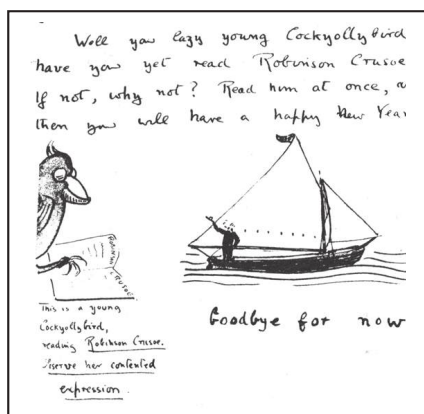 Well you lazy young Cockyollybird
have you yet read Robinson Crusoe
If not, why not? Read him at once, a
then you will have a happy New Year
ROBINSON
CRUSOE
This is a young
Cockyollybird,
reading Robinson Crusoe.
Observe her contented
expression.
Goodbye for now